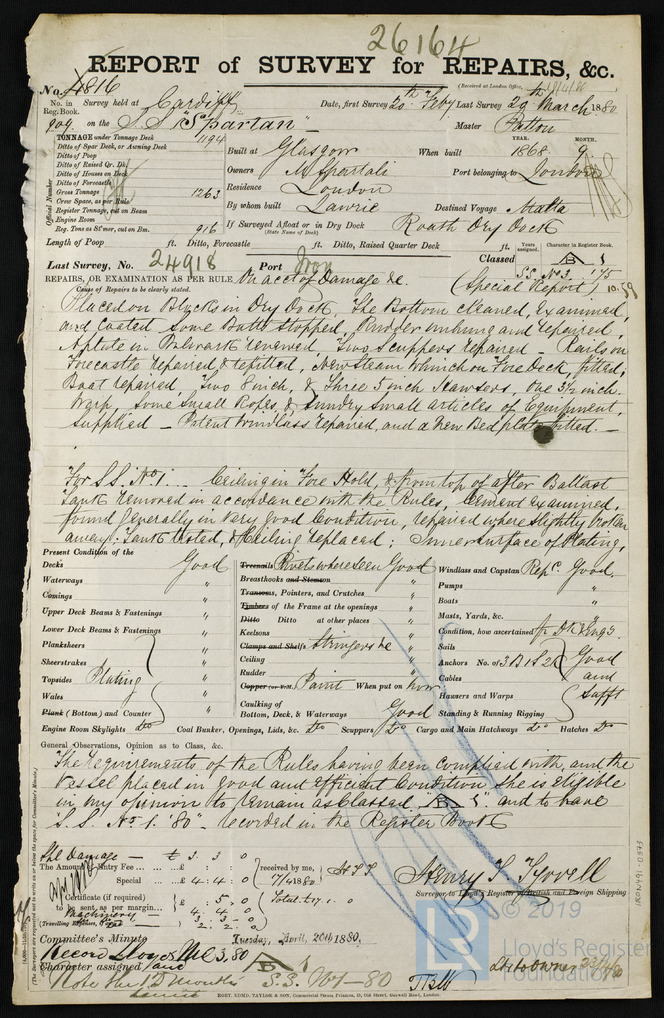 26164
REPORT of SURVEY for REPAIRS, &c.
No. 4816
(Received at London Office,
No. in Reg. Book.
Survey held at Cardiff
Date, first Survey 20th Feby Last Survey 29th March 1880
909 on the S.S. "Spartan"
Master Patton
TONNAGE under Tonnage Deck 1194
Ditto of Spar Deck, or Awning Deck
Ditto of Poop
Ditto of Raised Qr. Dk.
Ditto of Houses on Deck
Ditto of Forecastle
Gross Tonnage 1263
Crew Space, as per Rule
Register Tonnage, cut on Beam
Engine Room
Reg. Tons as St'mer, cut on Bm. 916
Official Number
YEAR. MONTH.
Built at Glasgow When built 1868 9
Owners M Spartali Port belonging to London
Residence London
By whom built Lawrie Destined Voyage Malta
If Surveyed Afloat or in Dry Dock Roath Dry Dock
(State Name of Dock)
Length of Poop ft. Ditto, Forecastle ft. Ditto, Raised Quarter Deck ft.
Years assigned. Character in Register Book.
Last Survey, No. 24918 Port Iron Classed A 1
S.S. No 3. '75
REPAIRS, OR EXAMINATION AS PER RULE, On acct of Damage &c. (Special Report)
Cause of Repairs to be clearly stated.
Placed on Blocks in Dry Dock, The Bottom cleaned, Examined,
and Coated. Some Butts Stopped, Rudder unhung and repaired,
A plate in Bulwark renewed, Two Scuppers repaired - Rails on
Forecastle repaired & refitted, New Steam Winch on Fore Deck, fitted,
Boat repaired, Two 8 inch, & Three 5 inch Hawsers, one 3½ inch
Warp, Some Small Ropes, & Sundry Small articles of Equipment,
Supplied - Patent Windlass repaired, and a new Bedplate fitted. -
For S.S. No 1. - Ceiling in Fore Hold, & from top of after Ballast
Tank removed in accordance with the Rules, Cement examined,
found generally in very good Condition, repaired where slightly broken
away; Tank tested, & Ceiling replaced; Inner surface of Plating,
Present Condition of the
Decks Good
Waterways "
Comings "
Upper Deck Beams & Fastenings "
Lower Deck Beams & Fastenings "
Planksheers "
Sheerstrakes "
Topsides Plating "
Wales "
Plank (Bottom) and Counter "
Engine Room Skylights do
Treenails Rivets where seen Good
Breasthooks and Stemson "
Transoms, Pointers, and Crutches "
Timbers of the Frame at the openings "
Ditto Ditto at other places "
Keelsons "
Clamps and Shelfs Stringers &c "
Ceiling "
Rudder "
Copper (or Y.M.) Paint When put on now
Caulking of
Bottom, Deck, & Waterways Good
Coal Bunker, Openings, Lids, &c. Do Scuppers Do Cargo and Main Hatchways do Hatches Do
Windlass and Capstan Repd. Good.
Pumps "
Boats "
Masts, Yards, &c. "
Condition, how ascertained fr Dk & Rings.
Sails
Anchors No. of 3 B 1 S 2 K Good
Cables and
Hawsers and Warps Sufft
Standing & Running Rigging
General Observations, Opinion as to Class, &c.
The Requirements of the Rules having been complied with, and the
Vessel placed in good and efficient Condition, She is eligible
in my opinion to remain as Classed A 1 and to have
"S.S. No 1. '80" recorded in the Register Book
Spl Damage - £ 3 : 3 : 0
The Amount of Entry Fee ... £ : :
Special ... £ 4 : 4 : 0
received by me, H S T
7/4 1880
Certificate (if required) £ : 5 : 0
to be sent, as per margin.. Total £17. 1. 0
Machinery - 4 : 4 : 0
Henry S. Tyrell
Surveyor to Lloyd's Register of British and Foreign Shipping
Committee's Minute Tuesday, April, 20th 1880.
Record Lloyds MC 3,80
Character assigned and A 1
S.S. No 1 - 80
ROBT. EDMD. TAYLOR & SON, Commercial Steam Printers, 19, Old Street, Goswell Road, London.
IRON 1194-0373
© 2019
Lloyd's Register
Foundation